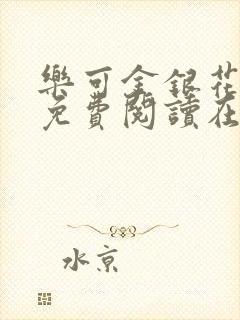 樂可金銀花
免費閱讀在
水京